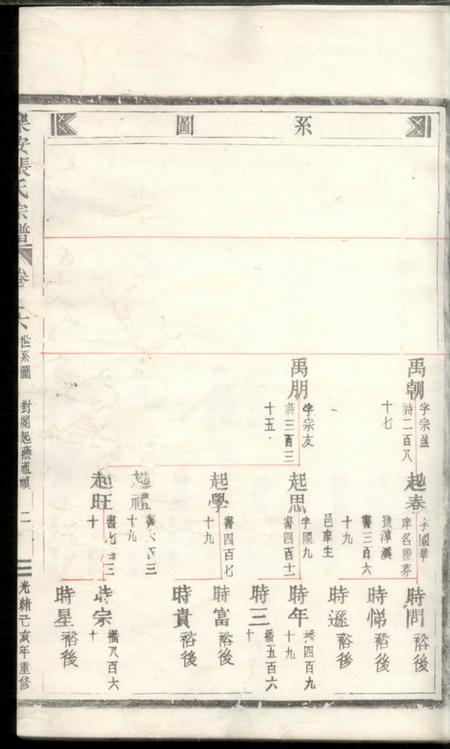 系圖
禹朝
字宗盛
詩二百八
十七
禹朋
字宗友
詩三百三
十五
起春
字國華
庠名際芬
號淳溪
書三百六
十九
邑庠生
起思
字國九
書四百十一
起學
書四百七
十九
起禮
起旺
十
時問
裕後
時悌
裕後
時遜
裕後
時年
四百九
十九
時三
五百六
十
時富
裕後
時貴
裕後
時宗
八百六
十
時星
裕後
安張氏宗譜
卷
世系圖
二
光緒己亥年重修